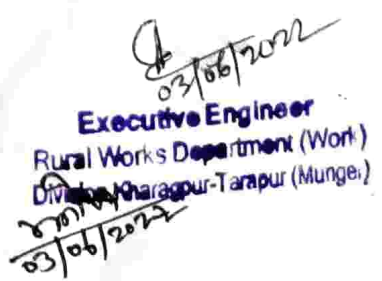 03/06/2022
Executive Engineer
Rural Works Department (Work)
Division Kharagpur-Tarapur (Munger)
03/06/2022